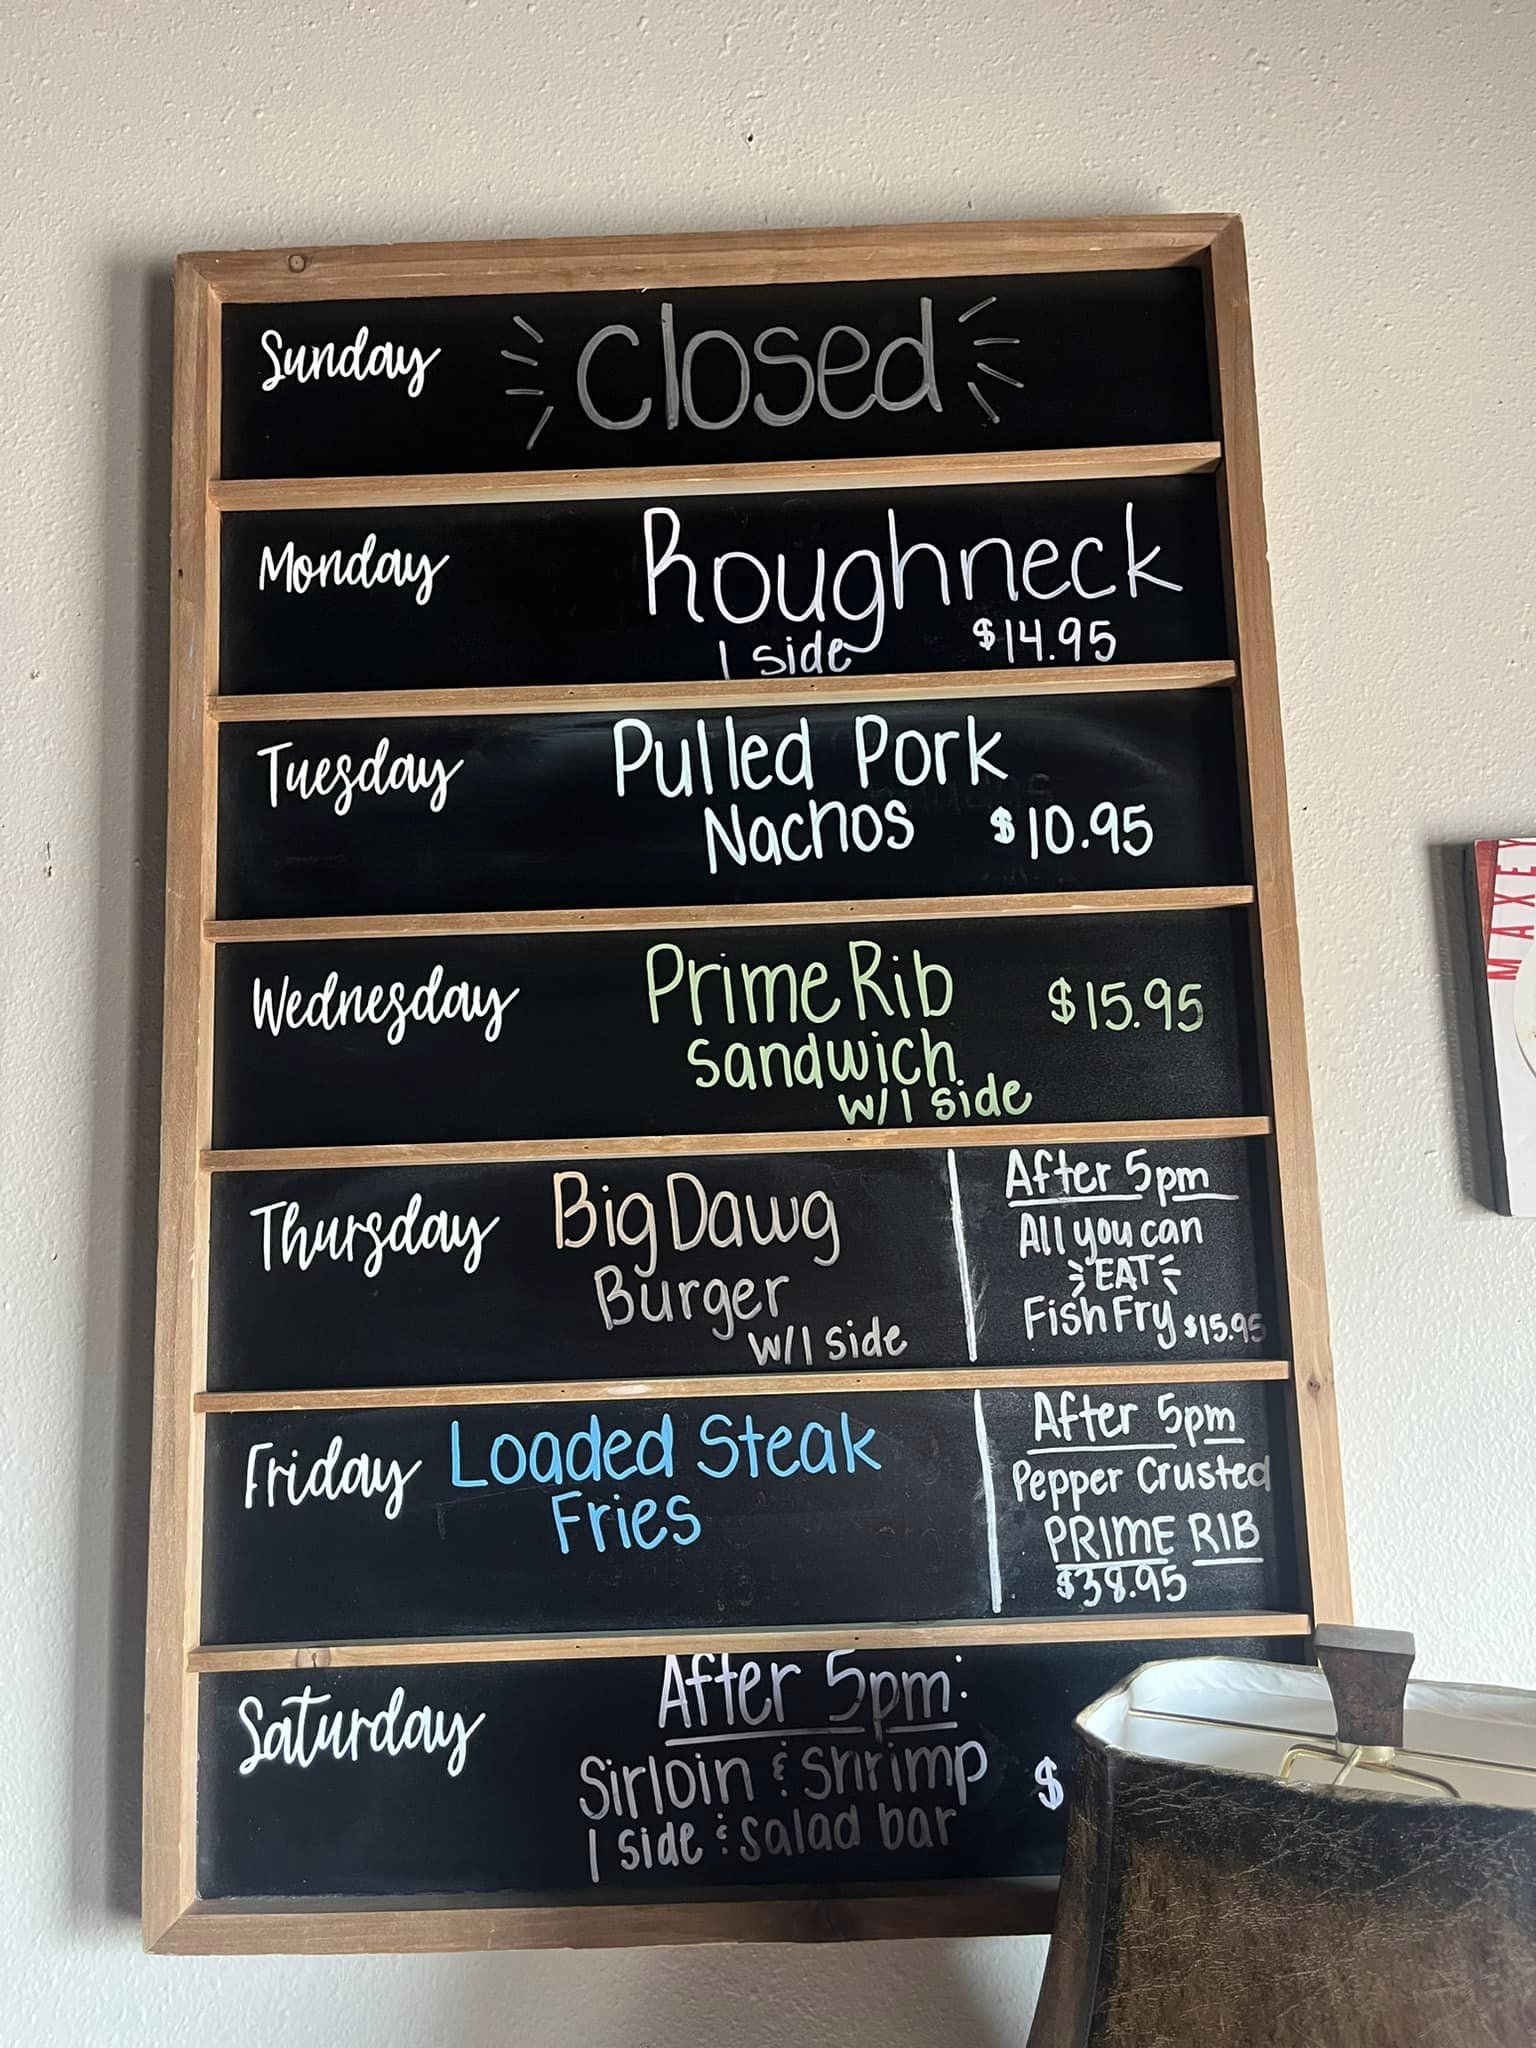 Sunday
Closed
Monday
Roughneck
1 side $14.95
Tuesday
Pulled Pork
Nachos $10.95
Wednesday
Prime Rib $15.95
Sandwich
w/1 side
Thursday
Big Dawg
Burger
w/1 side
After 5pm
All you can
EAT
Fish Fry $15.95
Friday
Loaded Steak
Fries
After 5pm
Pepper Crusted
PRIME RIB
$38.95
Saturday
After 5pm:
Sirloin & Shrimp $
1 side & salad bar
MAXEY